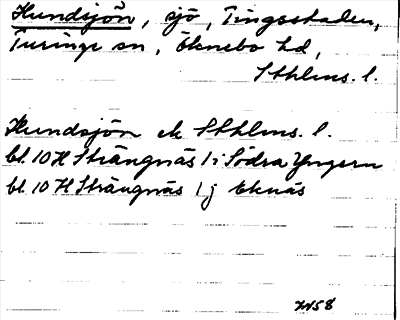 Hundsjön, sjö, Tingsstaden,
Turinge sn, Öknebo hd,
Sthlms. l.
Hundsjön ek Sthlms. l.
bl. 10 H Strängnäs 1 i Södra Yngern
bl. 10 H Strängnäs 1 j Eknäs
1958